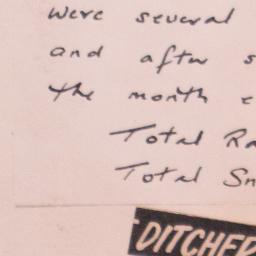 were several
and after s
the month
Total Ra
Total Sn
DITCHED